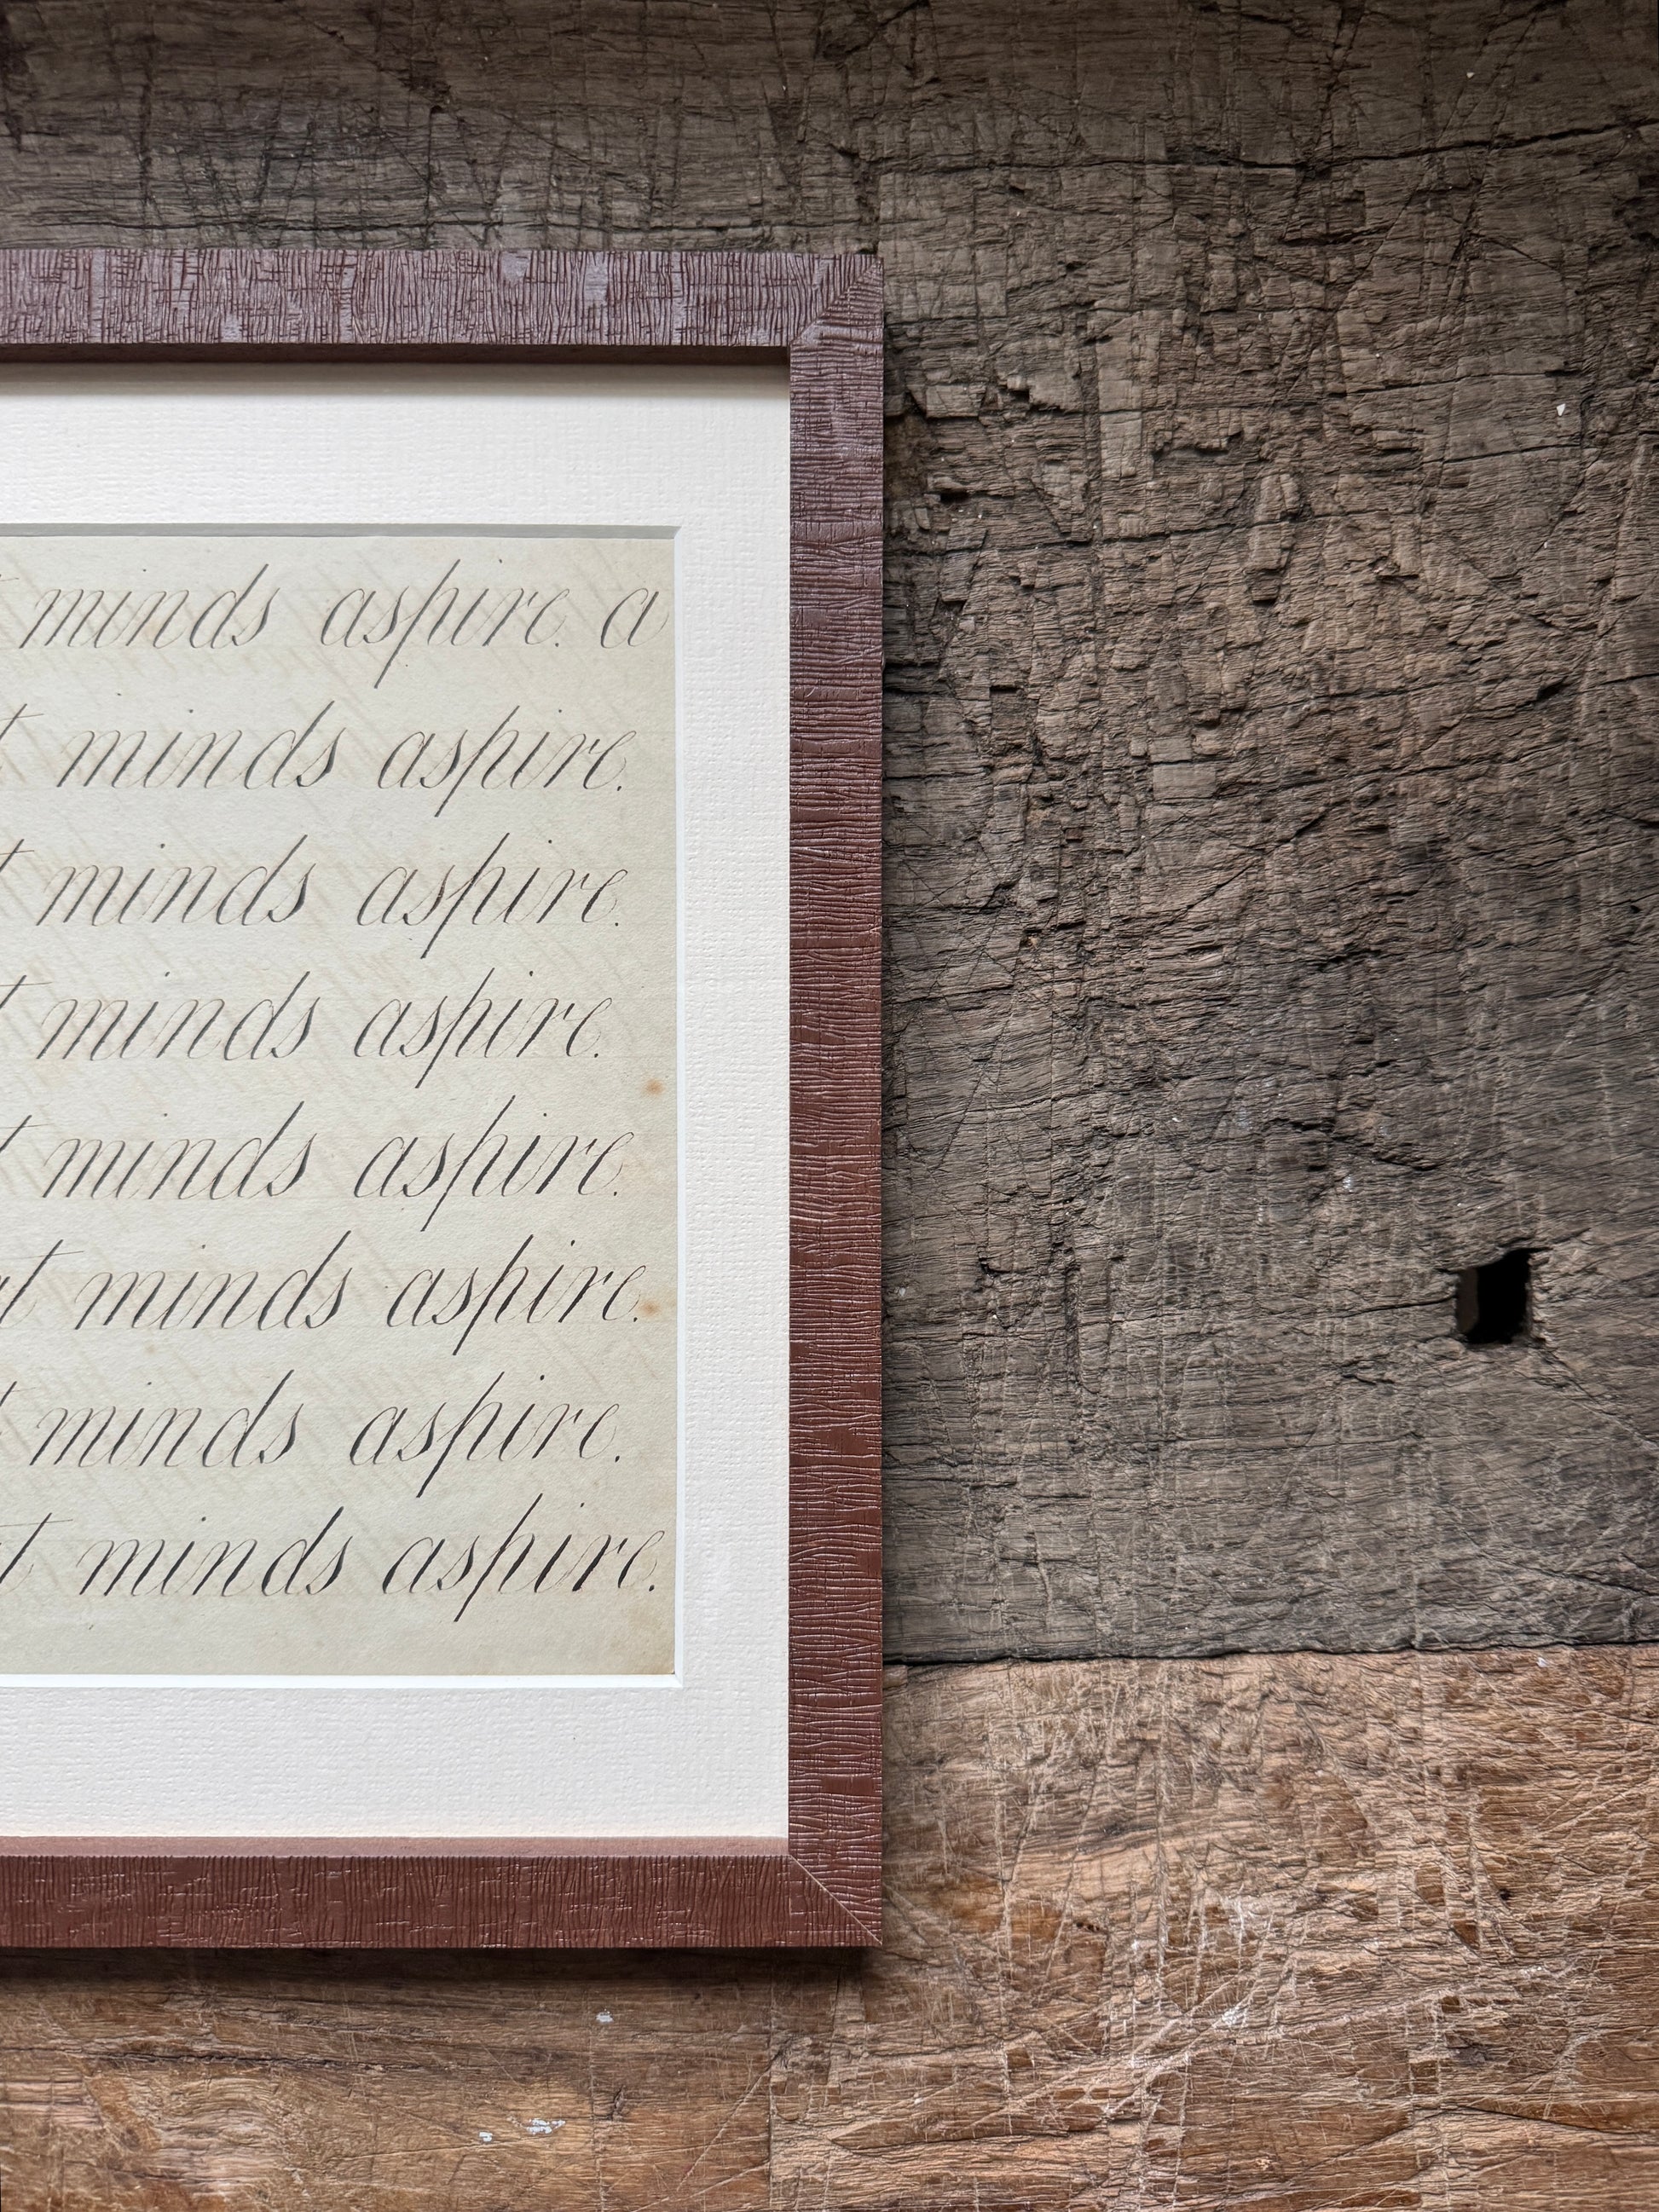 t minds aspire. a
t minds aspire.
t minds aspire.
t minds aspire.
t minds aspire.
at minds aspire.
t minds aspire.
at minds aspire.